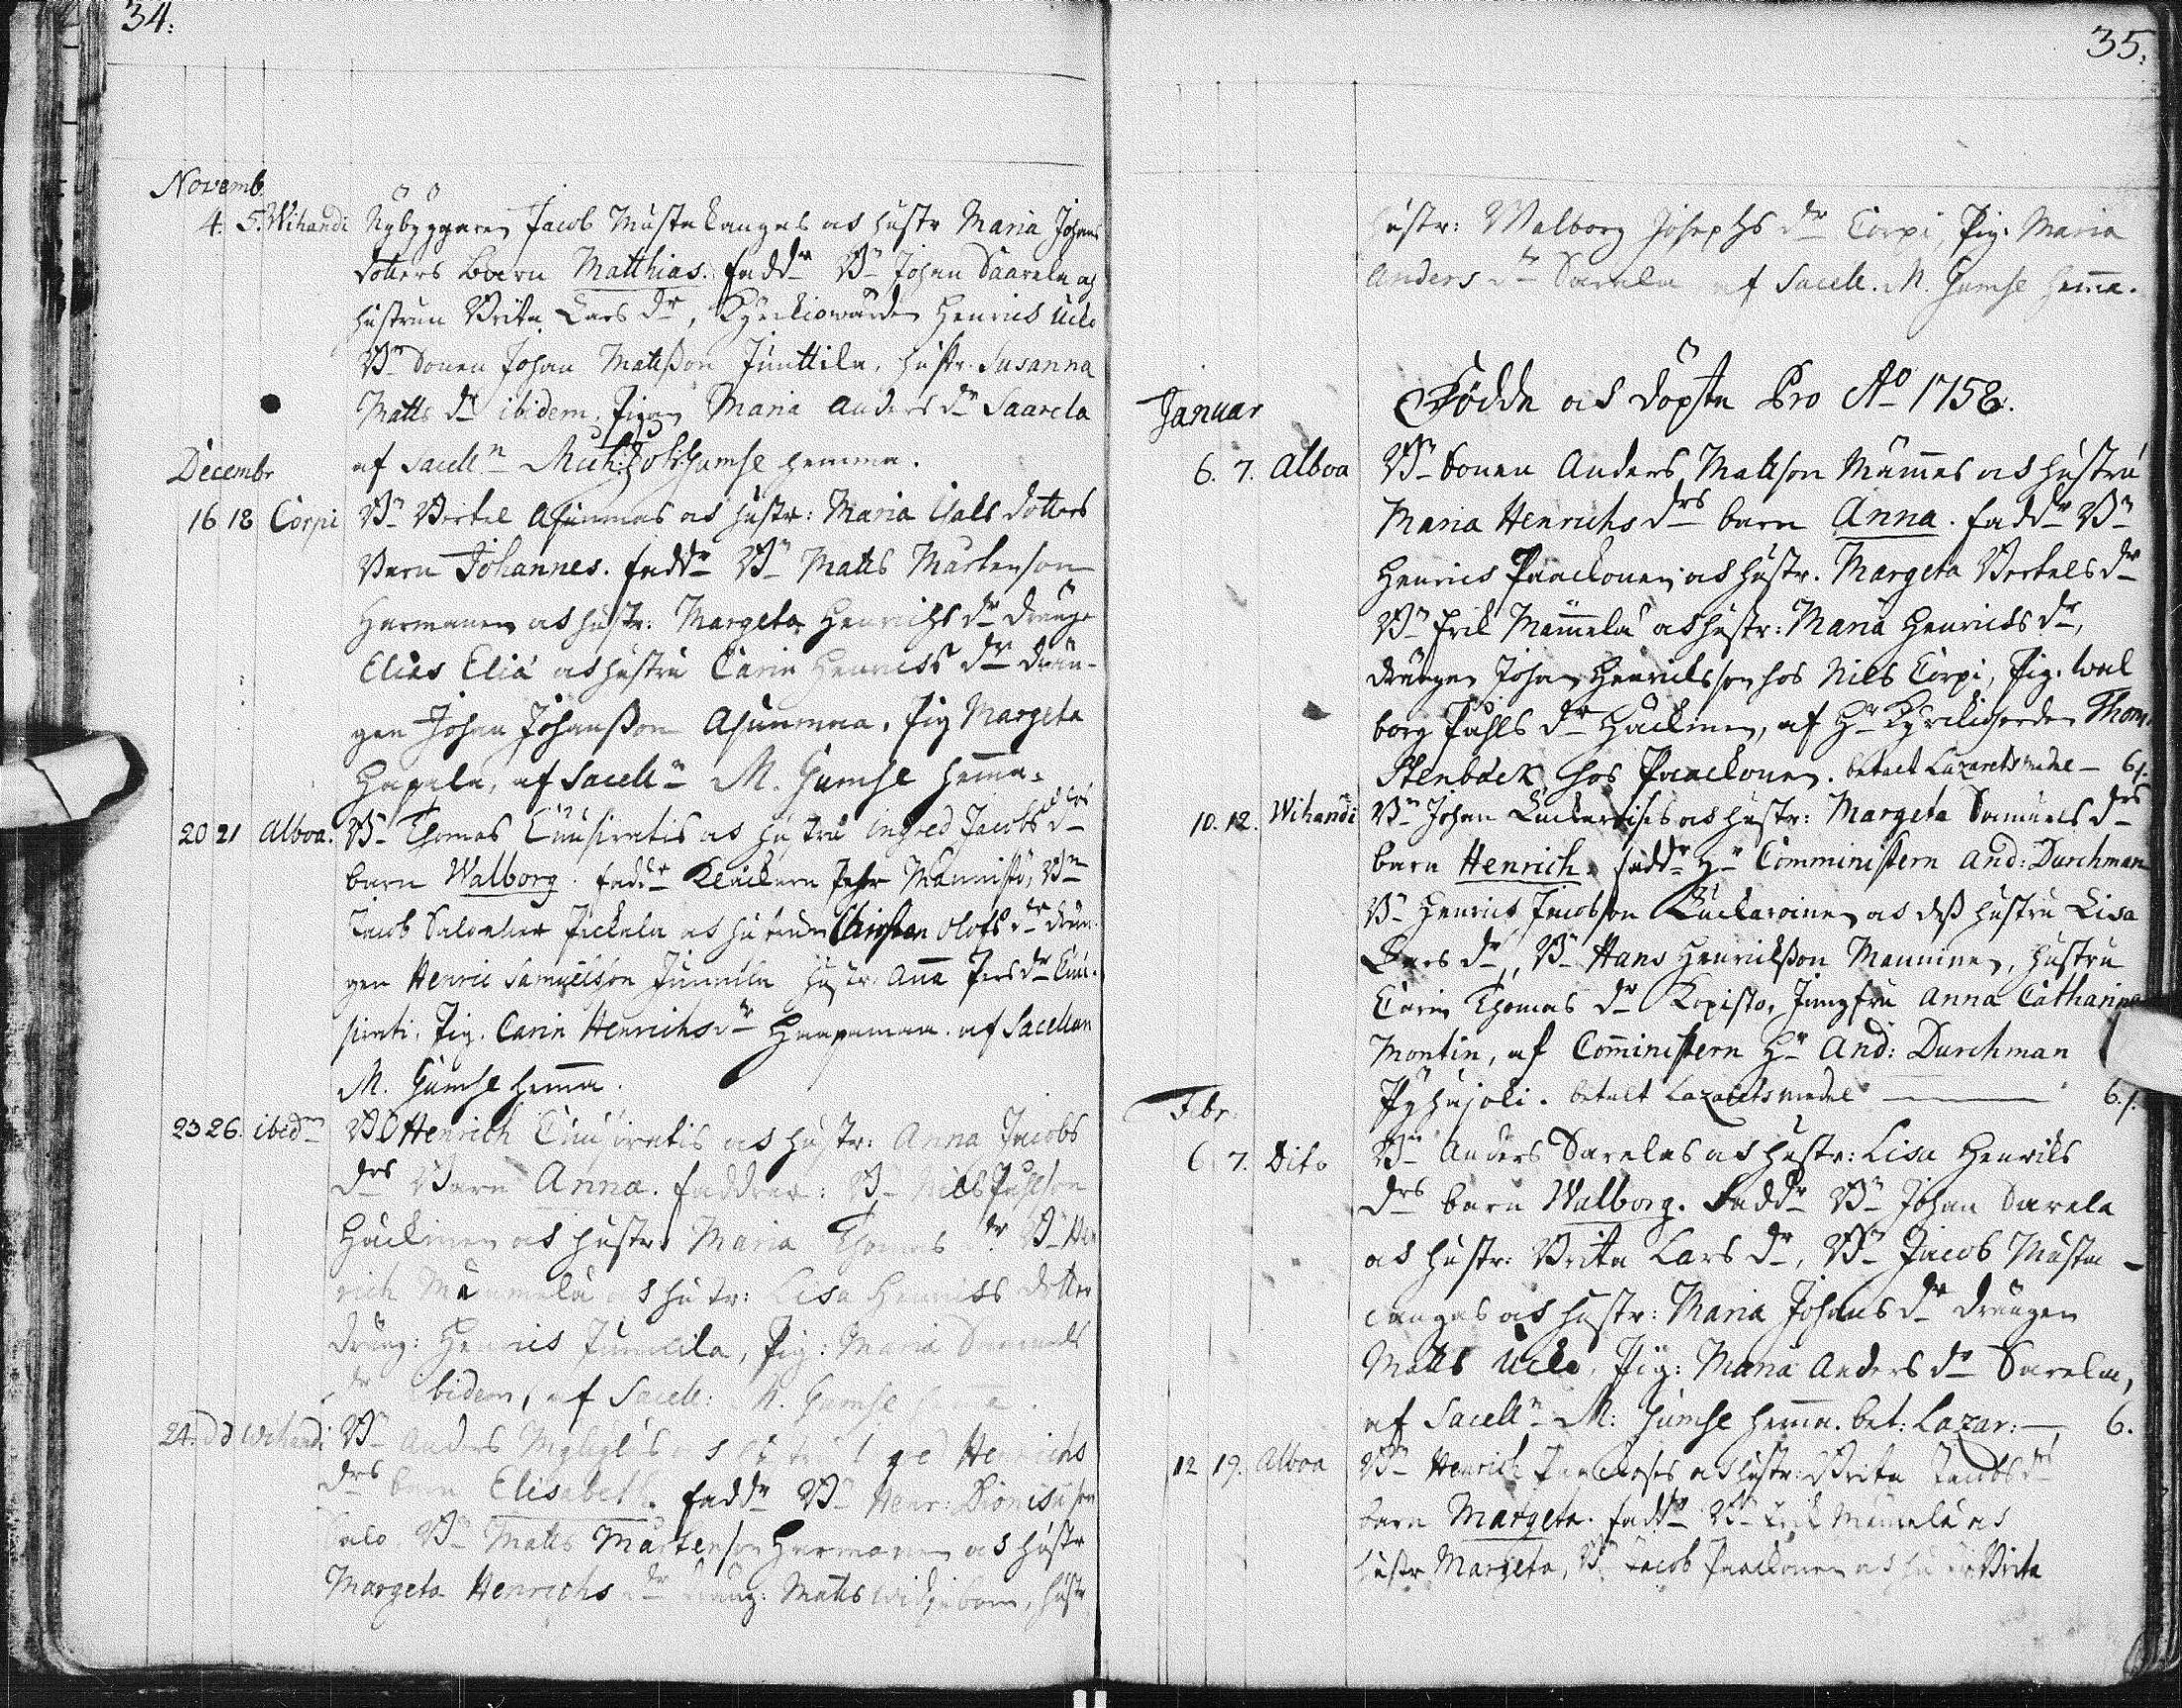 34.
Novemb.
4. 5. Wihandi Nybyggaren Jacob Mustakangas os hustr Maria Johans
dotters Barn Matthias. fadd:r B:n Johan Saarela os
hustrun Brita Lars d:r, Kyrkiowärden Henric Ucko
B:n Sonen Johan Matsson Junttila, hustr. Susanna
Matts d:r ibidem, Pigan Maria Anders d:r Saarela
af Sacell:n Mich: Joh: Gumse hemma.
Decembr
16 18 Corpi B:n Bertel Asunmas os hustr: Maria Isaks dotters
Barn Johannes. fadd:r B:n Matts Mårtenson
Hermanen os hustr: Margeta Henrichs d:r Dräng
Elias Eliä os hustru Carin Henrics d:r Drän-
gen Johan Johansson Asunmaa, Pig Margeta
Hapala, af Sacell:n M. Gumse hemma.
20 21 Alboa. B:n Thomas Cuusiratis os hustru Ingred Jacobs d:rs
barn Walborg. fadd:r Klåckarn Johan Mannistö, B:n
Jacob Pickala os hustrun Christin Olofs d:r drän-
gen Henric Samuelson Junnila hustr. Anna Pers d:r Cuu-
sirati, Pig. Carin Henrichs d:r Haapamaa. af Sacellan
M. Gumse hemma.
23 26. ibid:m B:n Henrich Cuusiratis os hustr: Anna Jacobs
d:rs Barn Anna. Faddrar: B:n Nils Påhlson
Häckinen os hustr: Maria Thomas d:r B:n Hen
rich Mämmelä os hustr: Lisa Henrics dotter
dräng: Henric Junnila, Pig: Maria Samuels
d:r ibidem, af Sacell: M. Gumse hemma.
24. d:o Wihandi B:n Anders os hustru Henrichs
d:rs barn Elisabeth. fadd:r B:n Henr: Dionisiison
Salo. B:n Matts Mårtenson Hermanen os hustr
Margeta Henrichs d:r dräng: Matts, hustr
35.
hustr: Walborg Josephs d:r Corpi, Pig. Maria
Anders d:r Sarala af Sacell. M. Gumse hemma.
Födde os Döpte Pro A:o 1758.
Januar
6. 7. Alboa B:n Sonen Anders Mattson Mämmes os hustru
Maria Henrichs d:rs barn Anna. fadd:r B:n
Henric Paackonen os hustr. Margeta Bertels d:r
B:n Erik Mämmelä os hustr: Maria Henrics d:r,
drängen Johan Henricksson hos Nils Corpi, Pig. Wal
borg Påhls d:r Häckinen, af H:r Kyrkioherden Thom.
Stenbäck hos Paackonen. betalt Lazaretsmedel — 6/.
10. 12. Wihandi B:n Johan os hustr: Margeta Samuels d:rs
barn Henrich. fadd:r H:r Comministern And: Durchman
B:n Henric Jacobson Luckaroinen os dess hustru Lisa
Lars d:r, B:n Hans Henricksson Manninen, hustru
Carin Thomas d:r Kopisto, Jungfru Anna Catharina
Montin, af Comministern H:r And: Durchman
Pyhäjoki. betalt Lazaretsmedel — 6/.
Febr.
6 7. Dito B:n Anders Sarelas os hustr: Lisa Henriks
d:rs barn Walborg. Fadd:r B:n Johan Sarela
os hustr: Brita Lars d:r, B:n Jacob Musta-
cangas os hustr: Maria Johans d:r Drängen
Matts Ucko, Pig: Maria Anders d:r Sarela,
af Sacell:n M: Gumse hemma. bet: Lazar: — 6.
12 19. Alboa B:n Henrich Paackoses os hustr: Brita Jacobs d:rs
barn Margeta. fadd:r B:n Erik Mämmelä os
hustr Margeta, B:n Jacob Paackonen os hustr Brita